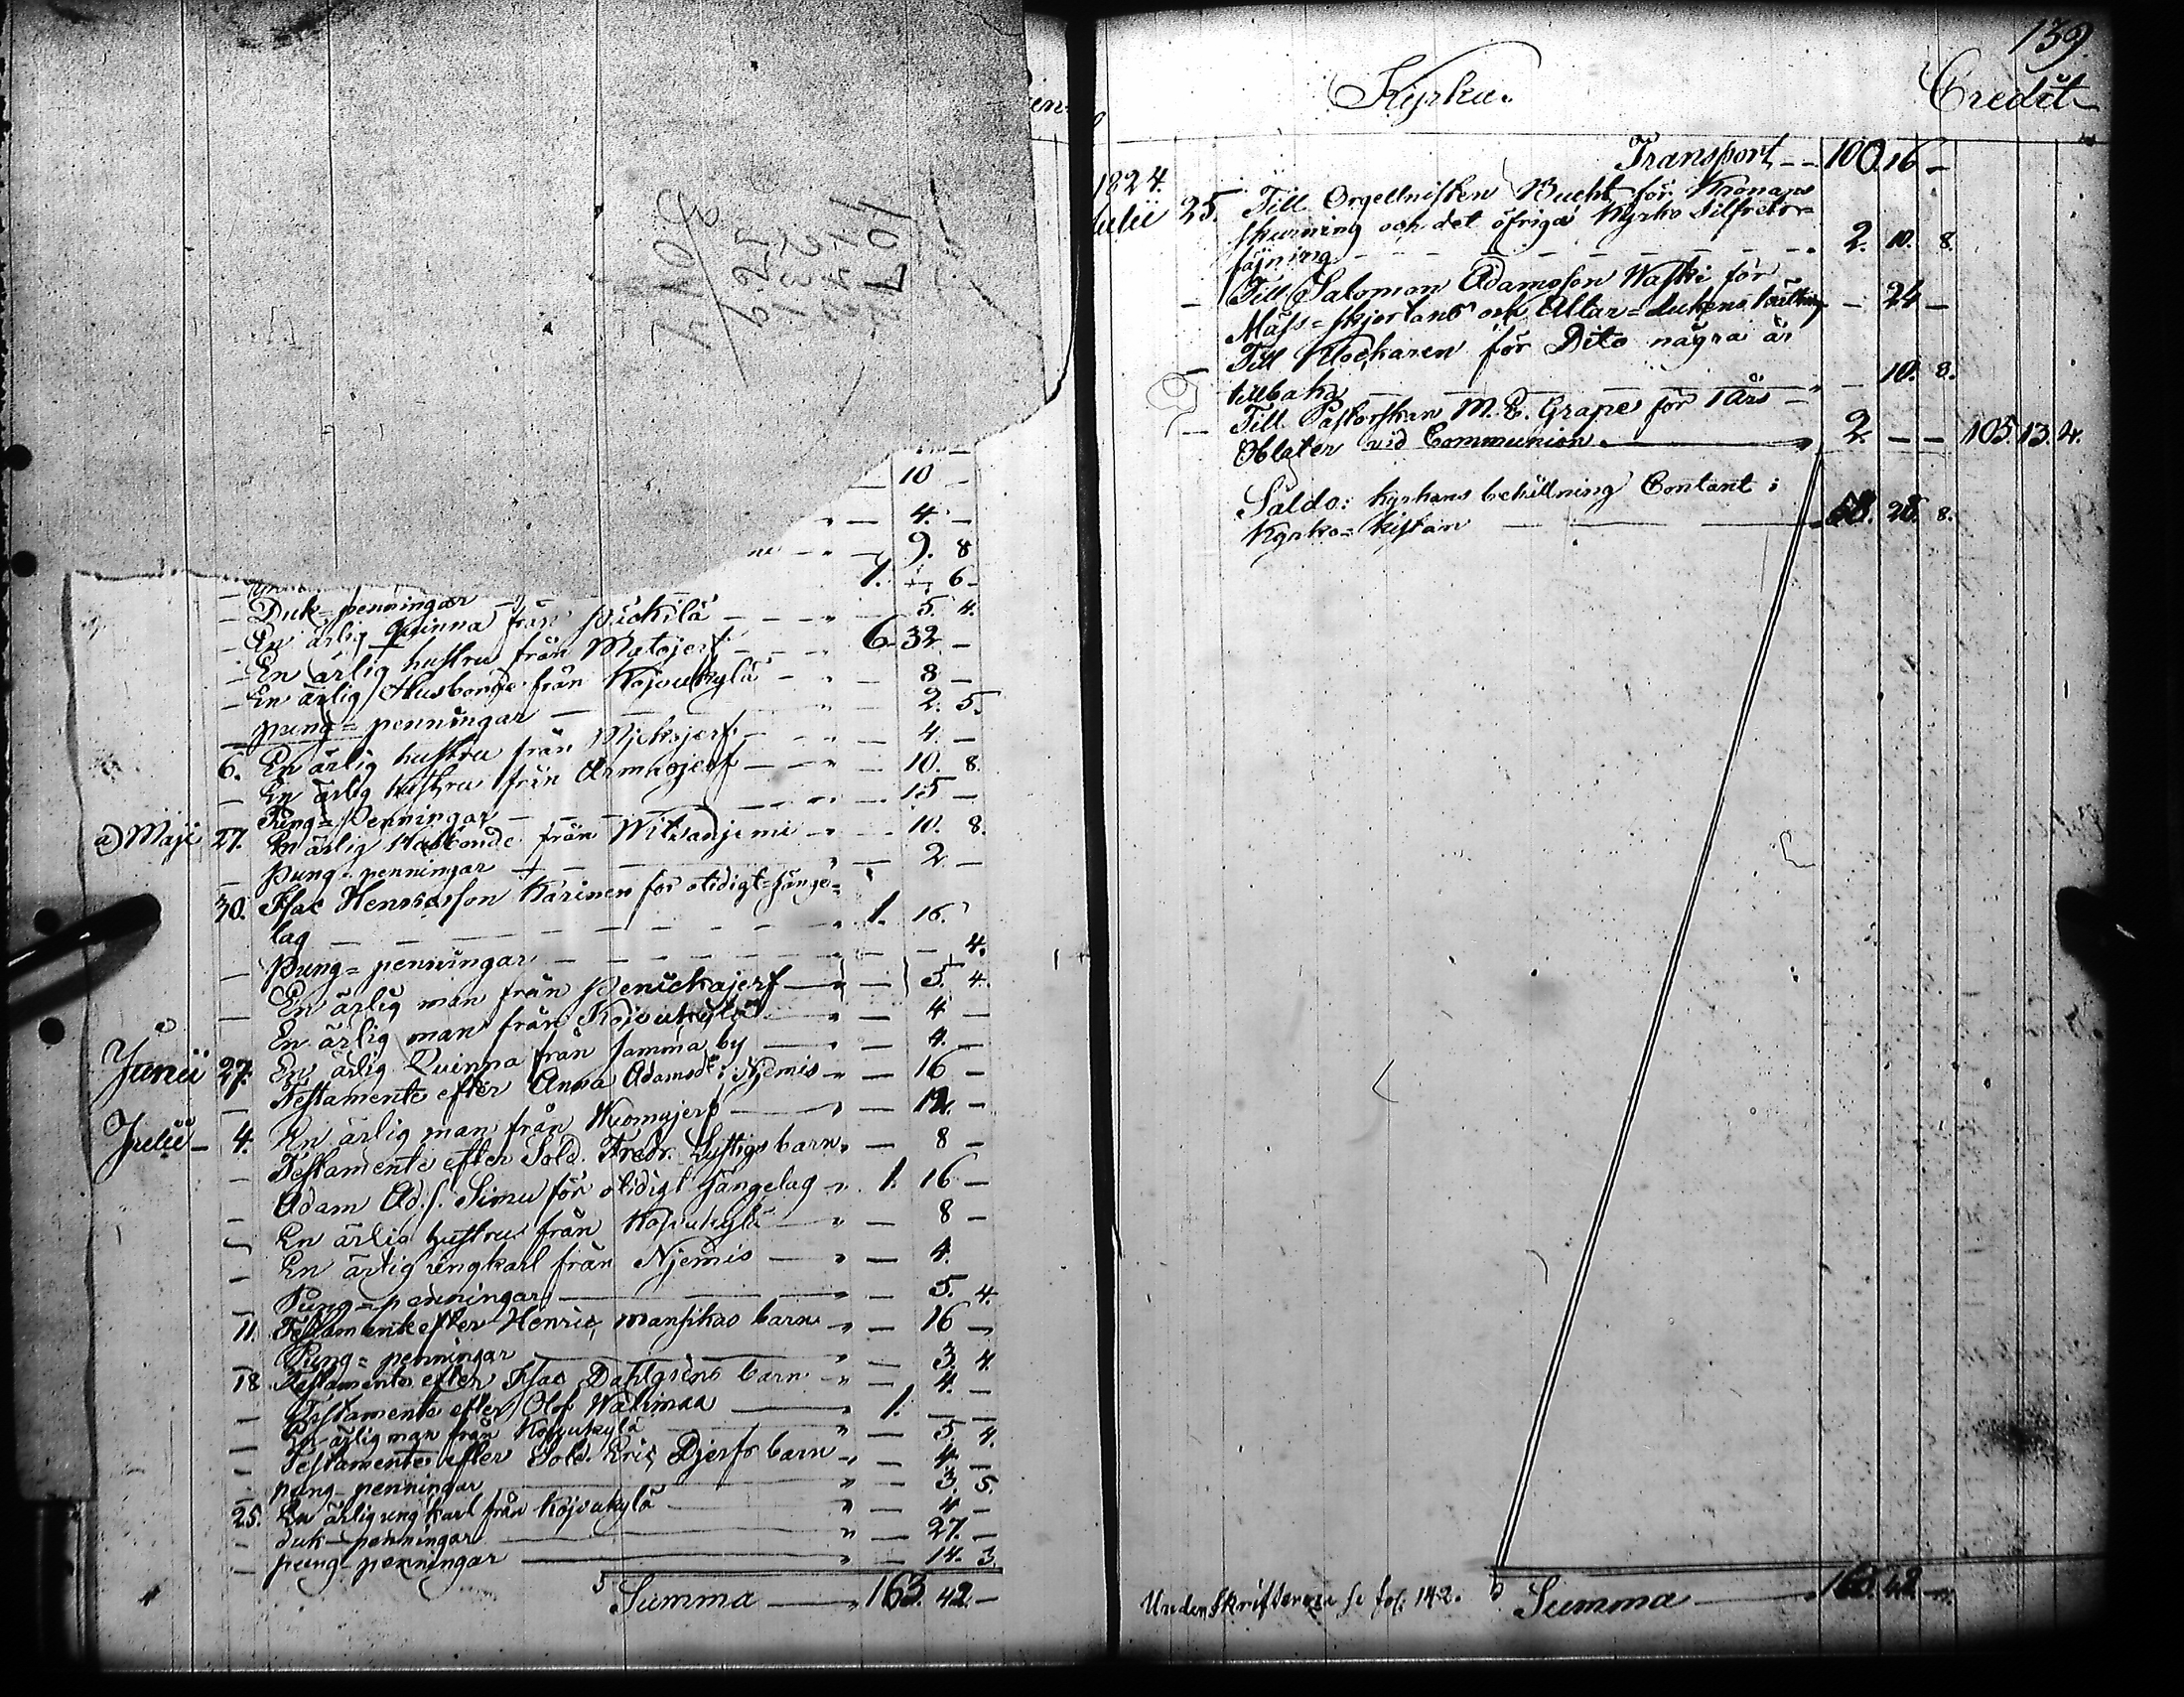 10 —
— 4. —
— 9. 8
1. — 6
— Duk-penningar — 5. 4.
— En ärlig quinna från Puckila — 6. 32 —
— En ärlig hustru från Matojerf — 8 —
— En ärlig Husbonde från Kojvukylä — 2. 5.
— pung=penningar — 4. —
6. En ärlig hustru från Mjekojerf — 10. 8.
— En ärlig hustru från Armasjerf — 15 —
— Pung=Penningar — 10. 8.
a) Maji 27. En ärlig Husbonde från Witsanjemi — 2 —
— Pung-penningar
30. Isac Henricsson Karinen för otidigt sänge=
lag — 1. 16.
— Pung=penningar — 4.
— En ärlig man från Penickajerf — 5. 4.
— En ärlig man från Kojvukylä — 4 —
Junii 27. En ärlig Quinna från samma by — 4. —
— Testamente efter Anna Adamsdr i Njemis — 16 —
Julii — 4. En ärlig man från Kuomajerf — 12. —
— Testamente efter Sold. Fredr. Lystigs barn — 8 —
— Adam Ad.s. Simu för otidigt sängelag — 1. 16 —
— En ärlig hustru från Kojvukylä — 8 —
— En ärlig ungkarl från Njemis — 4.
— Pung=penningar — 5. 4.
11. Testamente efter Henric Mansikas barn — 16 —
— Pung=penningar — 3. 4.
18 Testamente efter Isac Dahlgrens barn — 4. —
— Testamente efter Olof Walimaa — 1. — —
— En ärlig man från Kojvukylä — 5. 4.
— Testamente efter Sold. Eric Djerfs barn — 4. —
— pung-penningar — 3. 5.
25. En ärlig ungkarl från Kojvukylä — 4 —
— duk-penningar — 27. —
— pung-penningar — 14. 3.
Summa — 163. 42. —
139.
Kyrka. Credit
Transport — 100. 16 —
1824.
Julii 25. Till Orgellnisten Bucht för Kronans
skurning och det öfriga Kyrko silfrets
fäjning — 2. 10. 8.
— Till Salomon Adamsson Waski för
Mäss=skjortans och Altar=dukens tvättning — 24 —
— Till Klockaren för Dito några år
tillbaka — 10. 8.
— Till Pastorskan M. E. Grape för 1 Års
Oblater vid Communion — 2. — — 105. 13. 4.
Saldo: kyrkans behållning Contant i
Kyrko-kistan — 58. 28. 8.
Underskrifterne se fol. 142. Summa — 163. 42 —